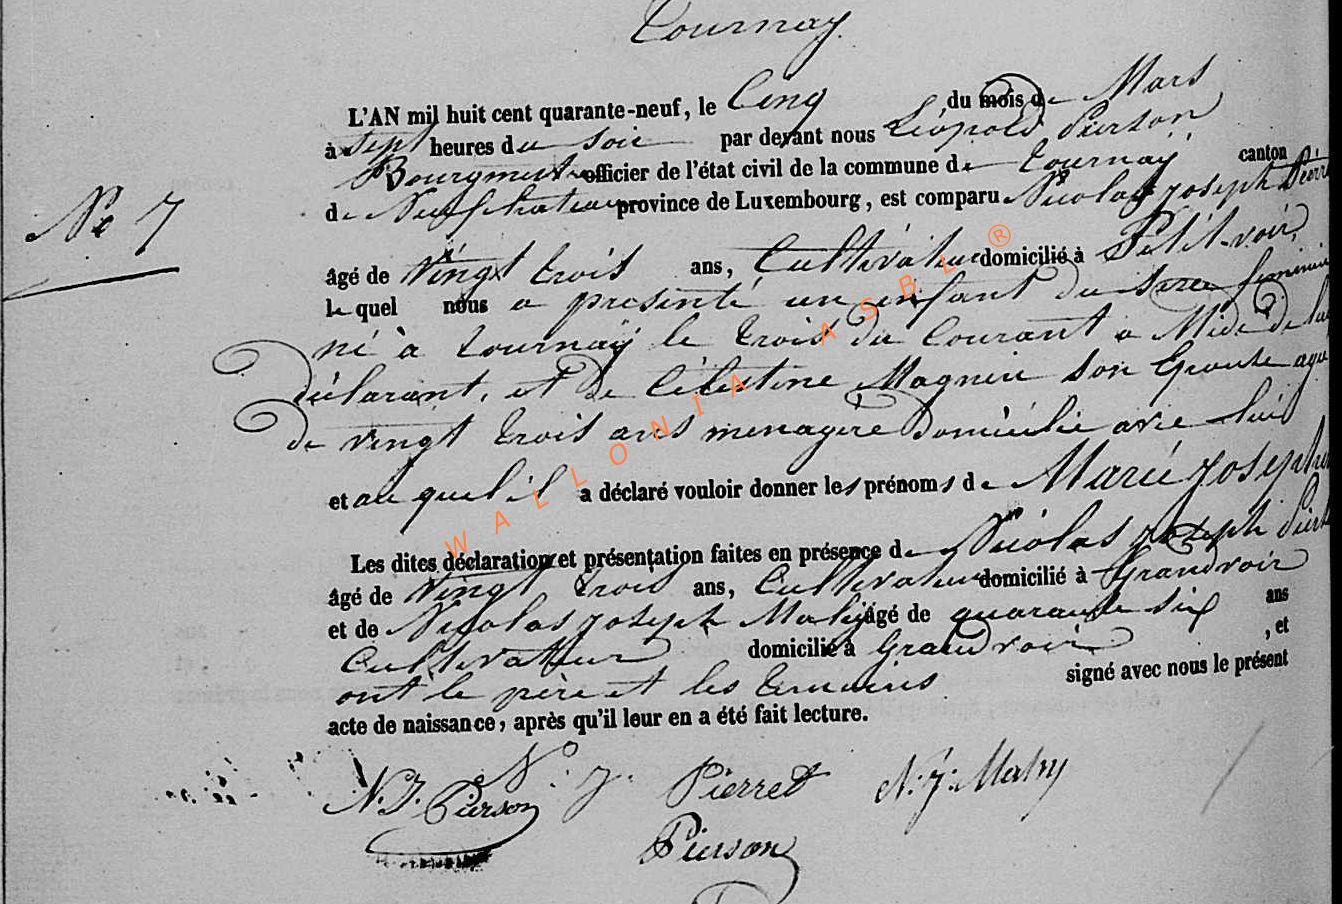 Tournay.
L'AN mil huit cent quarante-neuf, le Cinq du mois de Mars
à sept heures du soir par devant nous Léopold Pierson
Bourgmestre officier de l'état civil de la commune de Tournay canton
N° 7
de Neufchateau province de Luxembourg, est comparu Nicolas Joseph Pierre
âgé de Vingt trois ans, Cultivateur domicilié à Petit-voir,
lequel nous a presenté un enfant du sexe feminin
né à Tournay le trois du Courant a Midi de lui
déclarant, et de Célestine Magnin son Epouse agée
de vingt trois ans menagère domicilié avec lui
et auquel il a déclaré vouloir donner les prénoms de Marie Joseph
Les dites déclaration et présentation faites en présence de Nicolas Joseph Pierson
âgé de Vingt trois ans, Cultivateur domicilié à Grandvoir
et de Nicolas Joseph Mahy âgé de quarante six ans
Cultivateur domicilié à Grandvoir , et
ont le père et les temoins signé avec nous le présent
acte de naissance, après qu'il leur en a été fait lecture.
N. J. Pierson N. J. Pierret N. J. Mahy
Pierson
WALLONIA ASBL ®